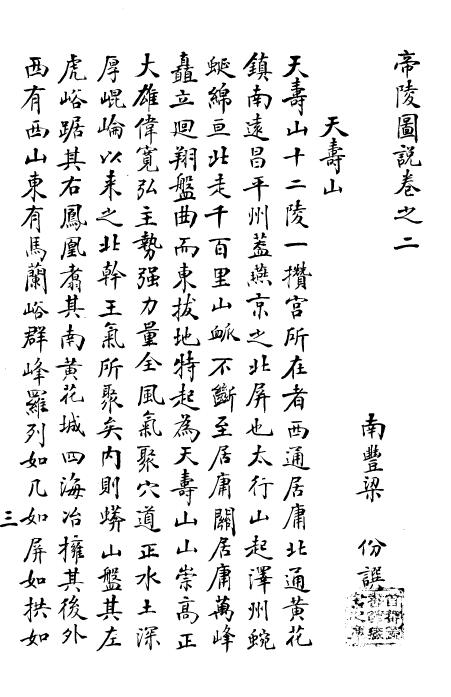 帝陵圖説卷之二
南豐梁　份譔
天壽山
天壽山十二陵一攢宮所在者西通居庸北通黃花
鎮南遠昌平州蓋燕京之北屏也太行山起澤州蜿
蜒綿亘北走千百里山脈不斷至居庸關居庸萬峰
矗立迴翔盤曲而東拔地特起為天壽山山崇高正
大雄偉寬弘主勢强力量全風氣聚穴道正水土深
厚崐崙以来之北幹王氣所聚矣内則蟒山盤其左
虎峪踞其右鳳凰翥其南黃花城四海冶擁其後外
西有西山東有馬蘭峪群峰羅列如几如屏如拱如
三